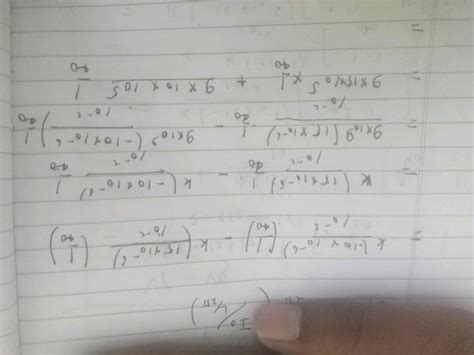 = k(-10×10⁻⁶)/10⁻² (1/40) - k(15×10⁻⁶)/10⁻² (1/40)
= k(15×10⁻⁶)/10⁻² 1/40 - k(-10×10⁻⁶)/10⁻² 1/40
= 9×10⁹(15×10⁻⁶)/10⁻² 1/40 - 9×10⁹(-10×10⁻⁶)/10⁻² 1/40
= 9×15×10⁵ × 1/40 + 9×10×10⁵ 1/40
=